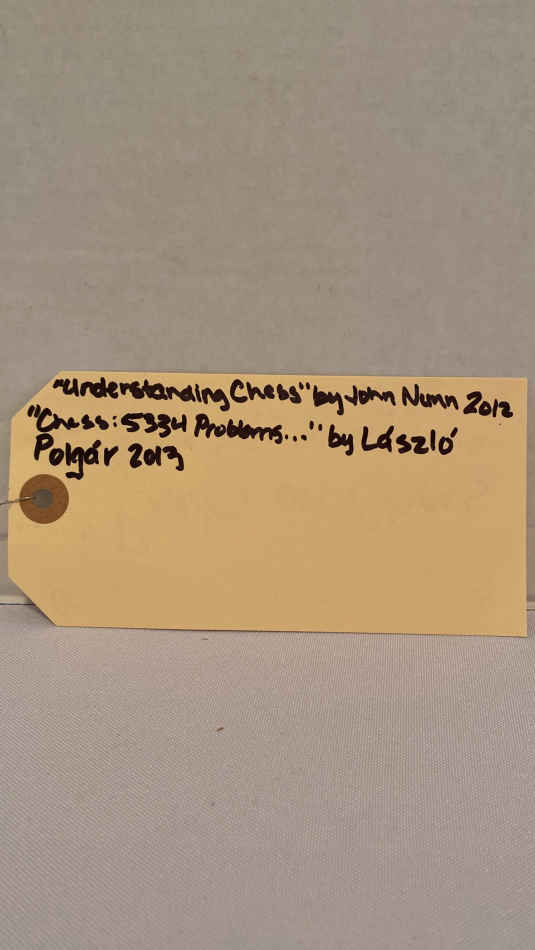 "Understanding Chess" by John Nunn 2012
"Chess: 5334 Problems..." by László
Polgár 2013